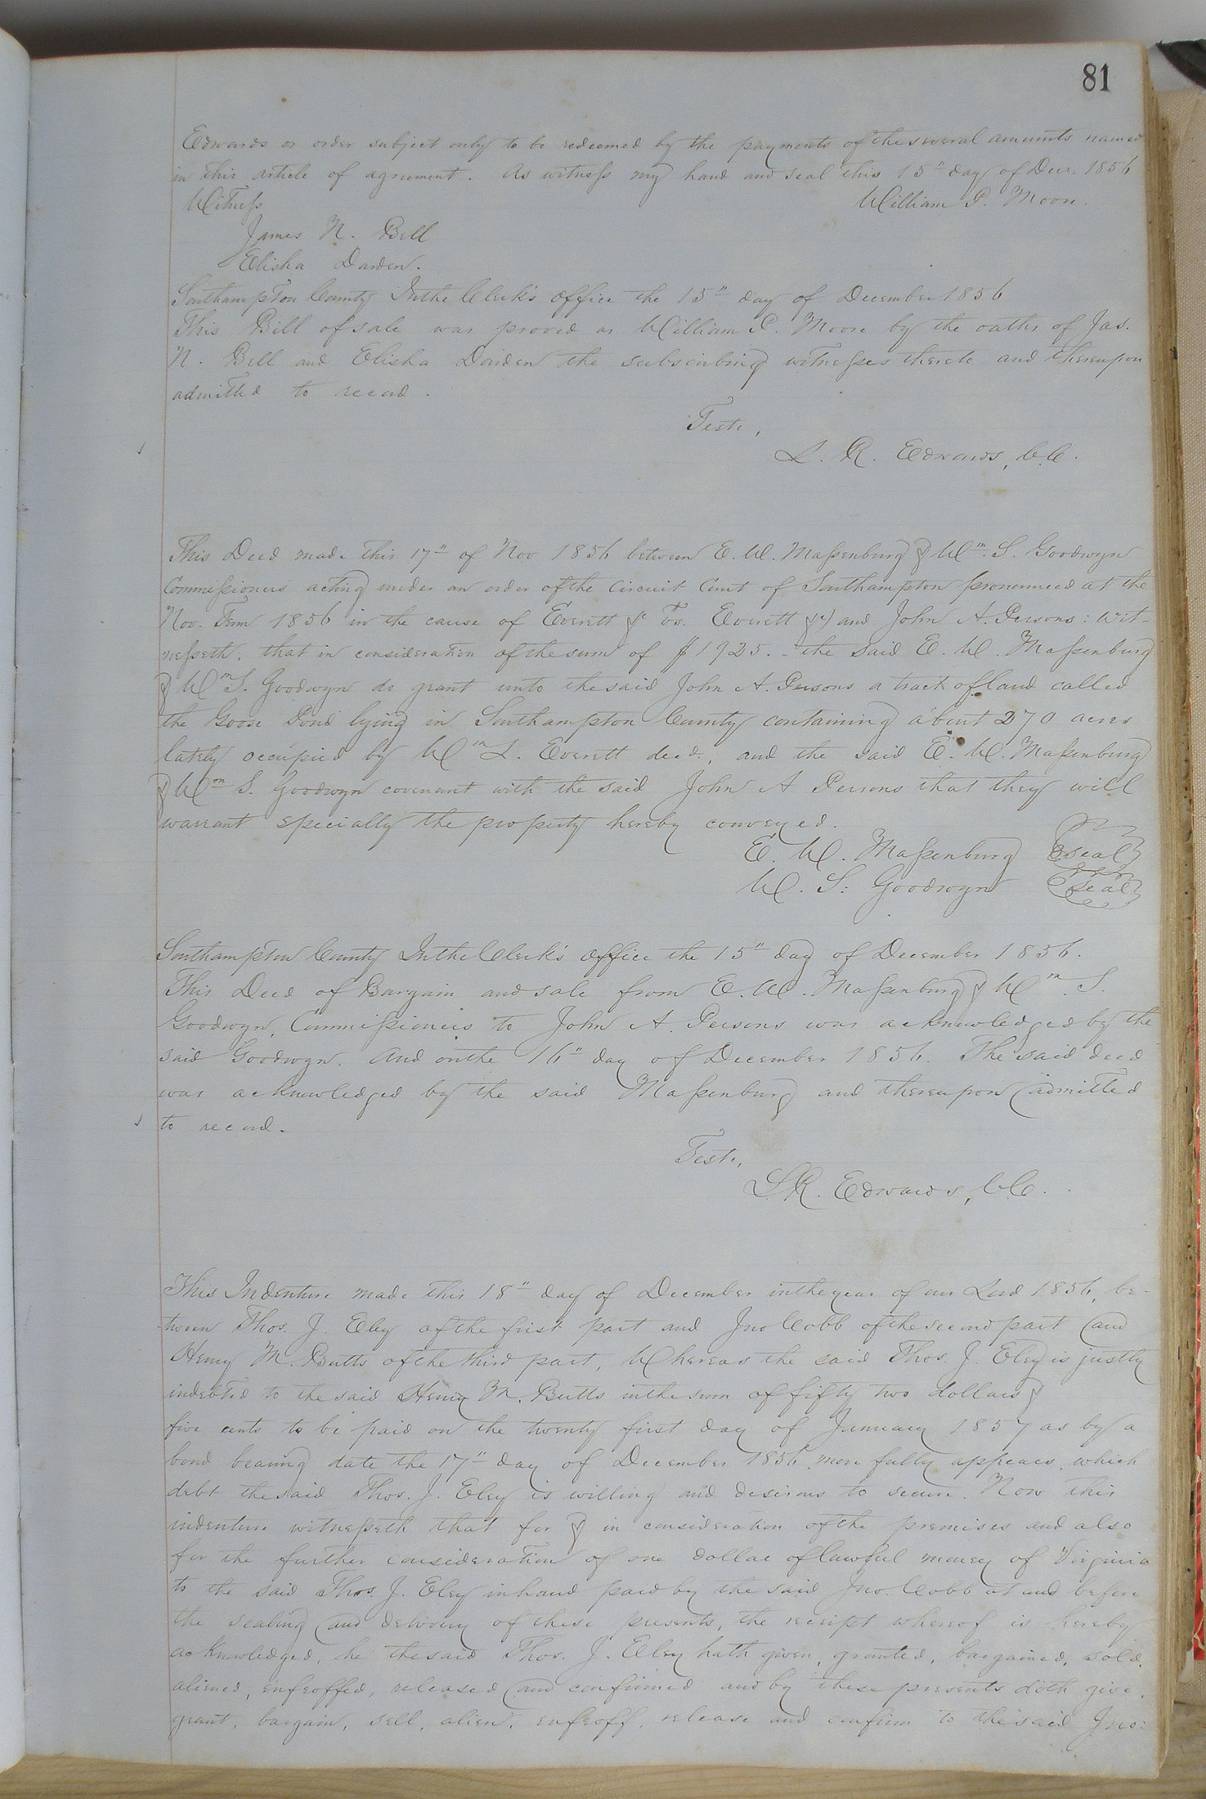 81
Edwards or order subject only to be redeemed by the payments of the several amounts named
in this article of agreement. As witness my hand and seal this 15" day of Decr. 1856
Witness William P. Moore.
James N. Bell
Elisha Darden.
Southampton County In the Clerk's office the 15" day of December 1856
This Bill of sale was proved as William P. Moore by the oaths of Jas.
N. Bell and Elisha Darden the subscribing witnesses thereto and thereupon
admitted to record.
Teste,
L. R. Edwards, C.C.
This Deed made this 17" of Nov 1856 between E. W. Massenburg & Wm. S. Goodwyn
Commissioners acting under an order of the Circuit Court of Southampton pronounced at the
Nov. Term 1856 in the cause of Everett & vs. Everett & and John A. Persons: Wit-
nesseth. that in consideration of the sum of $1925. - the said E. W. Massenburg
& Wm S. Goodwyn do grant unto the said John A. Persons a tract of land called
the Goose Pond lying in Southampton County containing about 270 acres
lately occupied by Wm L. Everett decd., and the said E. W. Massenburg
& Wm S. Goodwyn covenant with the said John A Persons that they will
warrant specially the property hereby conveyed.
E. W. Massenburg seal
W. S. Goodwyn seal
Southampton County In the Clerk's office the 15" day of December 1856.
This Deed of Bargain and sale from E. W. Massenburg & Wm. S.
Goodwyn, Commissioners to John A. Persons was acknowledged by the
said Goodwyn. And on the 16" day of December 1856. The said deed
was acknowledged by the said Massenburg and thereupon admitted
to record.
Teste,
L. R. Edwards, C.C.
This Indenture made this 18" day of December in the year of our Lord 1856, be-
tween Thos. J. Eley of the first part and Jno Cobb of the second part and
Henry M. Butts of the third part, Whereas the said Thos. J. Eley is justly
indebted to the said Henry M. Butts in the sum of fifty two dollars &
five cents to be paid on the twenty first day of January 1857 as by a
bond bearing date the 17" day of December 1856 more fully appears, which
debt the said Thos. J. Eley is willing and desirous to secure. Now this
indenture witnesseth that for & in consideration of the premises and also
for the further consideration of one dollar of lawful money of Virginia
to the said Thos. J. Eley in hand paid by the said Jno. Cobb at and before
the sealing and delivery of these presents, the receipt whereof is hereby
acknowledged, he the said Thos. J. Eley hath given, granted, bargained, sold,
aliened, enfeoffed, released and confirmed and by these presents doth give,
grant, bargain, sell, alien, enfeoff, release and confirm to the said Jno: